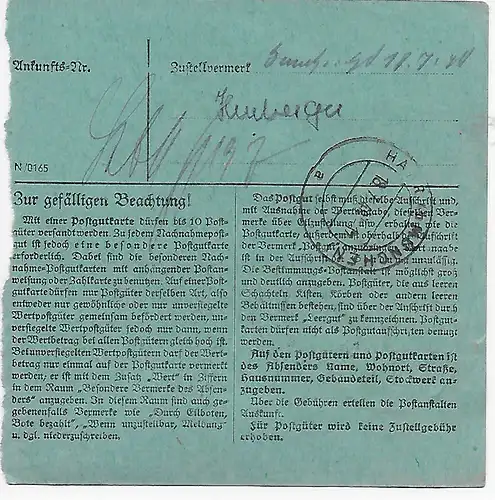 Ankunfts=Nr.
Zustellvermerk
N/0165
HAAR
MÜNCHEN
a
Zur gefälligen Beachtung!
Mit einer Postgutkarte dürfen bis 10 Post-
güter versandt werden. Zu jedem Nachnahmepost-
gut ist jedoch eine besondere Postgutkarte
erforderlich. Dabei sind die besonderen Nach-
nahme-Postgutkarten mit anhängender Postan-
weisung oder Zahlkarte zu benutzen. Auf einer Post-
gutkarte dürfen nur Postgüter derselben Art, also
entweder nur gewöhnliche oder nur unversiegelte
Wertpostgüter gemeinsam befördert werden, un-
versiegelte Wertpostgüter jedoch nur dann, wenn
der Wertbetrag bei allen Postgütern gleich hoch ist.
Bei unversiegelten Wertpostgütern darf der Wert-
betrag nur einmal auf der Postgutkarte vermerkt
werden; er ist mit dem Zusatz „Wert" in Ziffern
in dem Raum „Besondere Vermerke des Absen-
ders" anzugeben. In diesem Raum sind auch ge-
gebenenfalls Vermerke wie „Durch Eilboten,
Bote bezahlt", „Wenn unzustellbar, Meldung"
u. dgl. niederzuschreiben.
Das Postgut selbst muß dieselbe Aufschrift und,
mit Ausnahme der Wertangabe, dieselben Ver-
merke über
Postgutkarte.
der Vermerk „Post
ist in der
Die Bestimmungs-Postan möglichst groß
und deutlich anzugeben. Postgüter, die aus leeren
Schachteln, Kisten, Körben oder andern leeren
Behältnissen bestehen, sind über der Aufschrift durch
den Vermerk „Leergut" zu kennzeichnen. Postgut-
karten dürfen nicht als Postgutaufschriften benutzt
werden.
Auf den Postgütern und Postgutkarten ist
des Absenders Name, Wohnort, Straße,
Hausnummer, Gebäudeteil, Stockwerk an-
zugeben.
Über die Gebühren erteilen die Postanstalten
Auskunft.
Für Postgüter wird keine Zustellgebühr
erhoben.